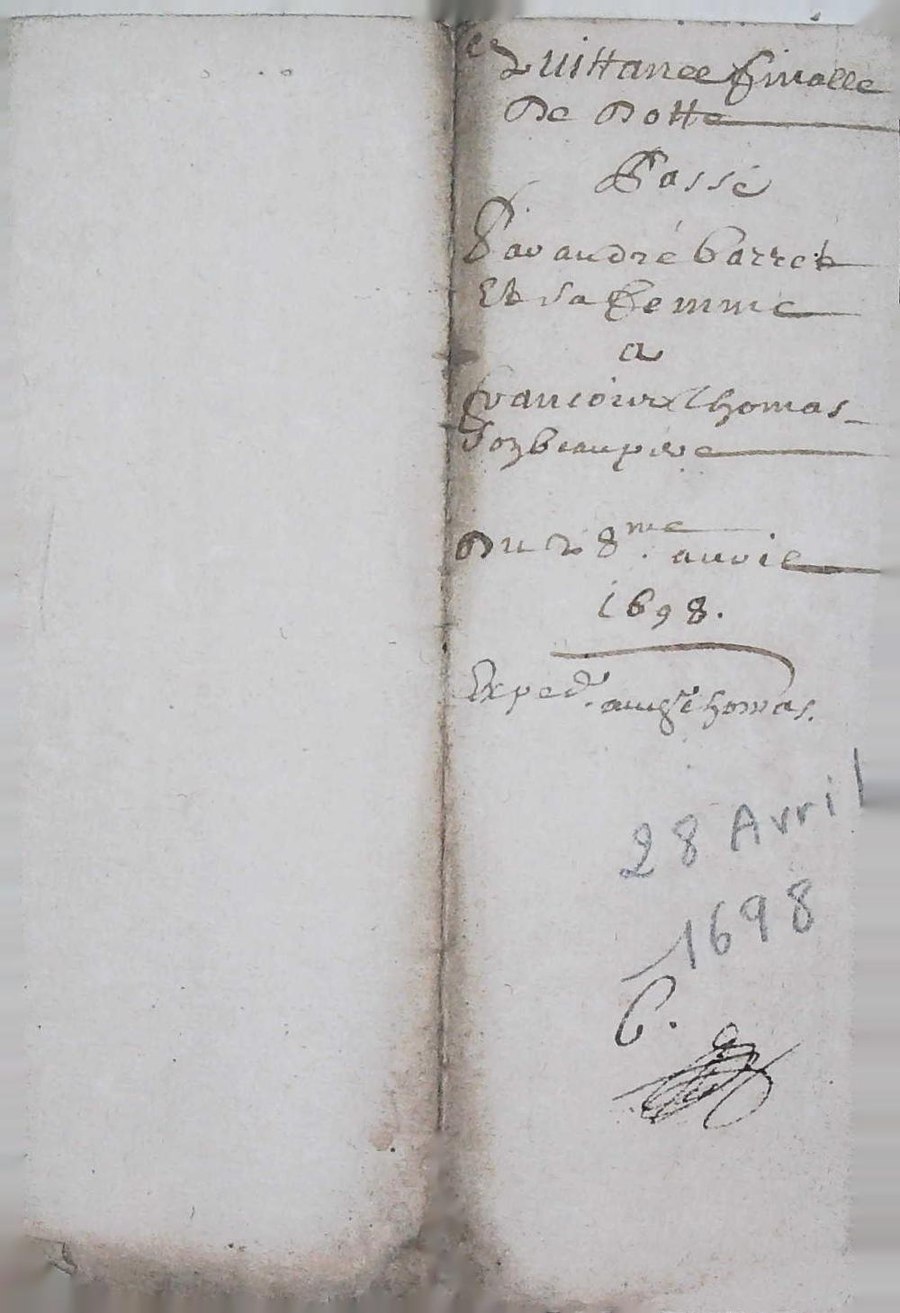 Quittance finalle
De Dotte
Passé
Par andré barret
Et sa femme
a
francoius Thomas
son beaupere
Du 28me. auril
1698.
Exped. aud. Thomas.
28 Avril
1698
C.